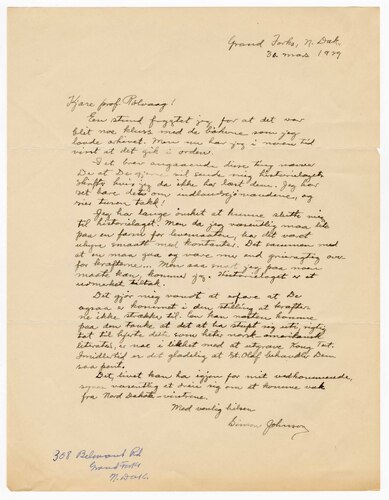 Grand Forks, N. Dak.
30 mars 1929
Kjære prof. Rölvaag!
En stund frygtet jeg for at det var
blit noe kluss med de bökene som jeg
lovde arkivet. Men nu har jeg i noen tid
visst at det gik i orden.
I et brev angaaende disse ting nevner
De at De gjerne vil sende mig historielagets
skrifter hvis jeg da ikke har læst dem. Jeg har
set bare den om indlandssjömændene, og
sier tusen takk!
Jeg har længe önsket at kunne slutte mig
til historielaget. Men da jeg vaasentlig maa lite
paa en farm for levemaaten, har det vært
uhyre smaatt med kontanter. Det sammen med
at en maa gaa og være saa end gnieragtig over
for kræfterne. Men saa snart jeg paa noen
maate kan, kommer jeg. Historielaget er et
udmerket tiltak.
Det gjör mig vondt at erfare at De
ogsaa er kommet i den stilling at kræfter
ne ikke strækker til. En kan næsten komme
paa den tanke at det at ha skrevet sig rigtig
ind til hjerte den, som heter norsk amerikansk
literatur, er noe i likhet med at utgrave Kong Tut.
Imidlertid er det glædelig at St. Olaf behandler Dem
saa pent.
Det, livet kan ha igjen for mit vedkommende,
synes væsentlig at dreie sig om at komme væk
fra Nord Dakota-vintrene.
Med venlig hilsen
Simon Johnson
308 Belmont Rd
Grand Forks
N. Dak.